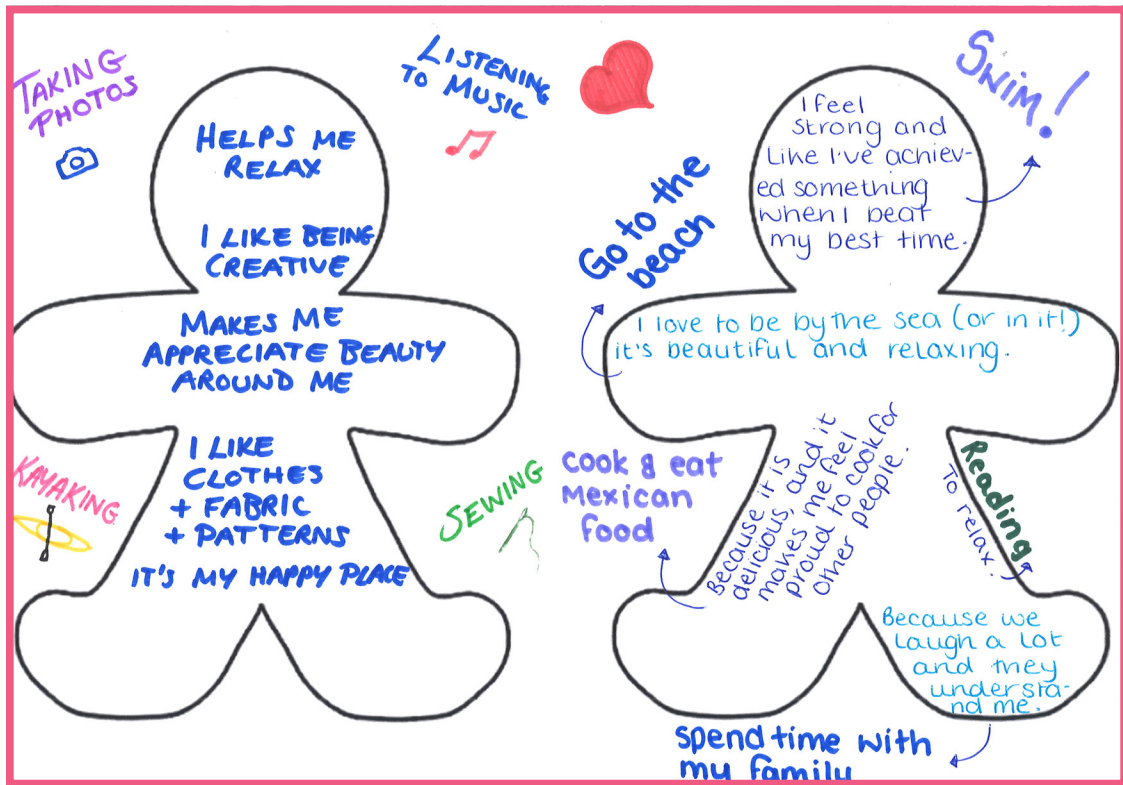 TAKING
PHOTOS
LISTENING
TO MUSIC
HELPS ME
RELAX
I LIKE BEING
CREATIVE
MAKES ME
APPRECIATE BEAUTY
AROUND ME
I LIKE
CLOTHES
+ FABRIC
+ PATTERNS
IT'S MY HAPPY PLACE
KAYAKING
SEWING
Swim!
I feel
strong and
like I've achiev-
ed something
when I beat
my best time.
Go to the
beach
I love to be by the sea (or in it!)
it's beautiful and relaxing.
cook & eat
Mexican
food
Because it is
delicious, and it
makes me feel
proud to cook for
other people.
Reading
To relax.
Because we
laugh a lot
and they
understa-
nd me.
spend time with
my family